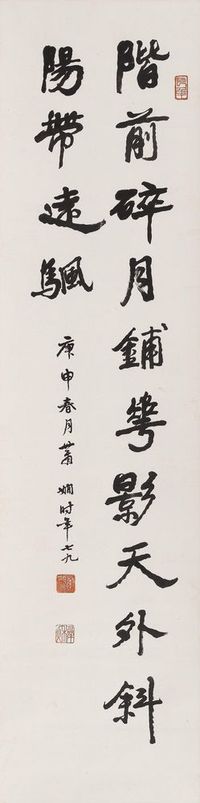 階前碎月鋪花影天外斜
陽帶遠颿
庚申春月蕭嫻時年七九